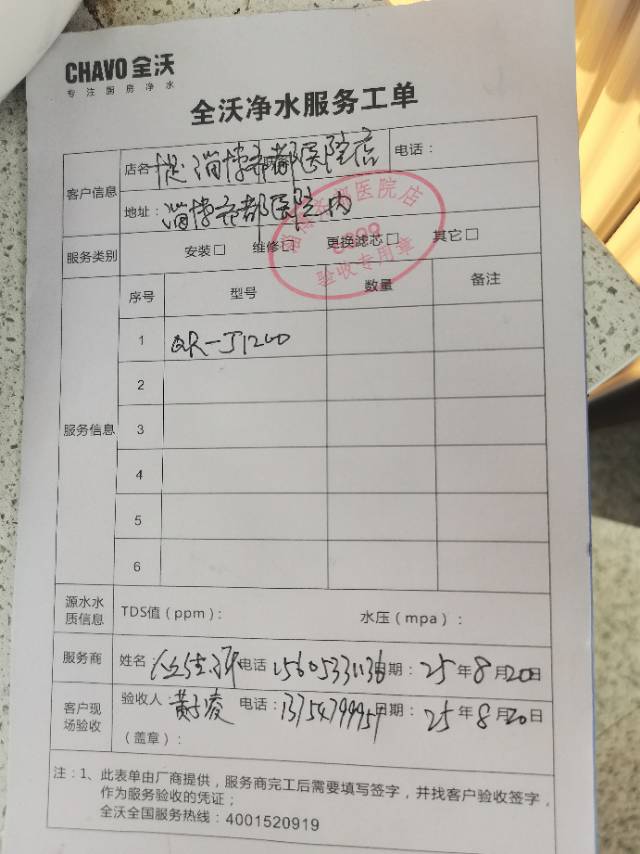 CHAVO 全沃
专注厨房净水
全沃净水服务工单
客户信息
店名 淄博齐都医院店
电话：
地址：淄博齐都医院内
服务类别 安装□ 维修□ 更换滤芯□ 其它□
齐都医院店
验收专用章
服务信息
序号 型号 数量 备注
1 QR-J1200
2
3
4
5
6
源水水质信息 TDS值（ppm）： 水压（mpa）：
服务商 姓名 电话 日期：25年8月20日
客户现场验收 验收人：黄凌 电话：13754799957 日期：25年8月20日
（盖章）：
注：1、此表单由厂商提供，服务商完工后需要填写签字，并找客户验收签字，
作为服务验收的凭证；
全沃全国服务热线：4001520919